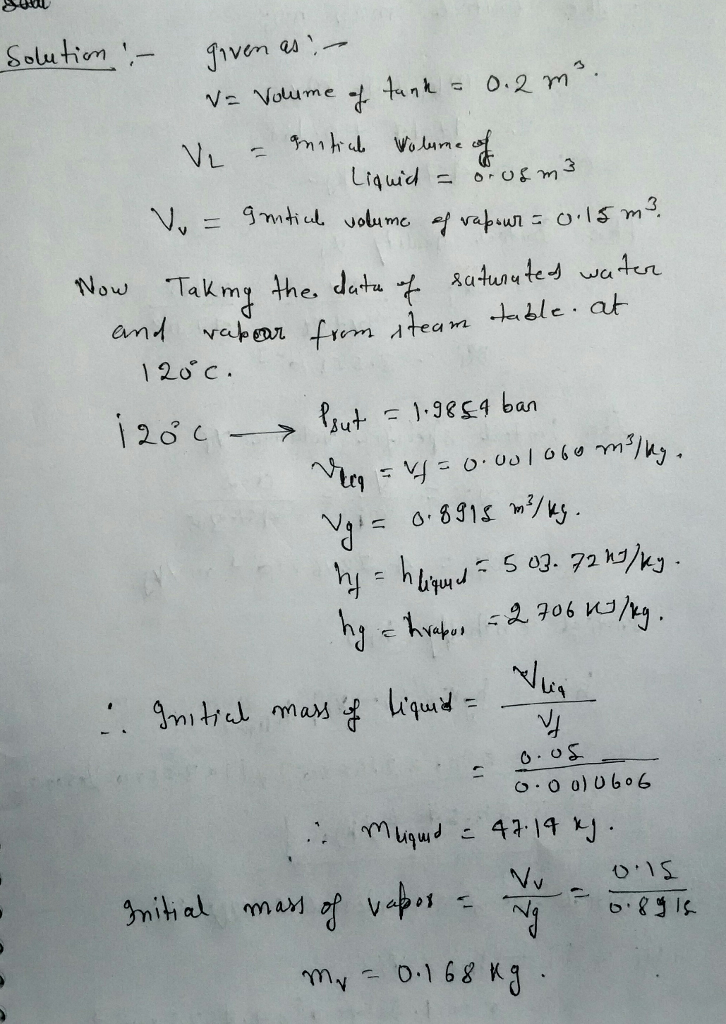 Solution :- given as :-
V = Volume of tank = 0.2 m³.
VL = Initial Volume of
Liquid = 0.05 m³
Vv = Initial volume of vapour = 0.15 m³.
Now Taking the data of saturated water
and vapour from steam table. at
120°C.
120°C → Psat = 1.9854 bar
vliq = vf = 0.001060 m³/kg.
vg = 0.8915 m³/kg.
hf = hliquid = 503.72 kJ/kg.
hg = hvapor = 2706 kJ/kg.
∴ Initial mass of liquid = Vliq / vf
= 0.05 / 0.0010606
∴ mliquid = 47.14 kg.
Initial mass of vapor = Vv / vg = 0.15 / 0.8915
mv = 0.168 kg.